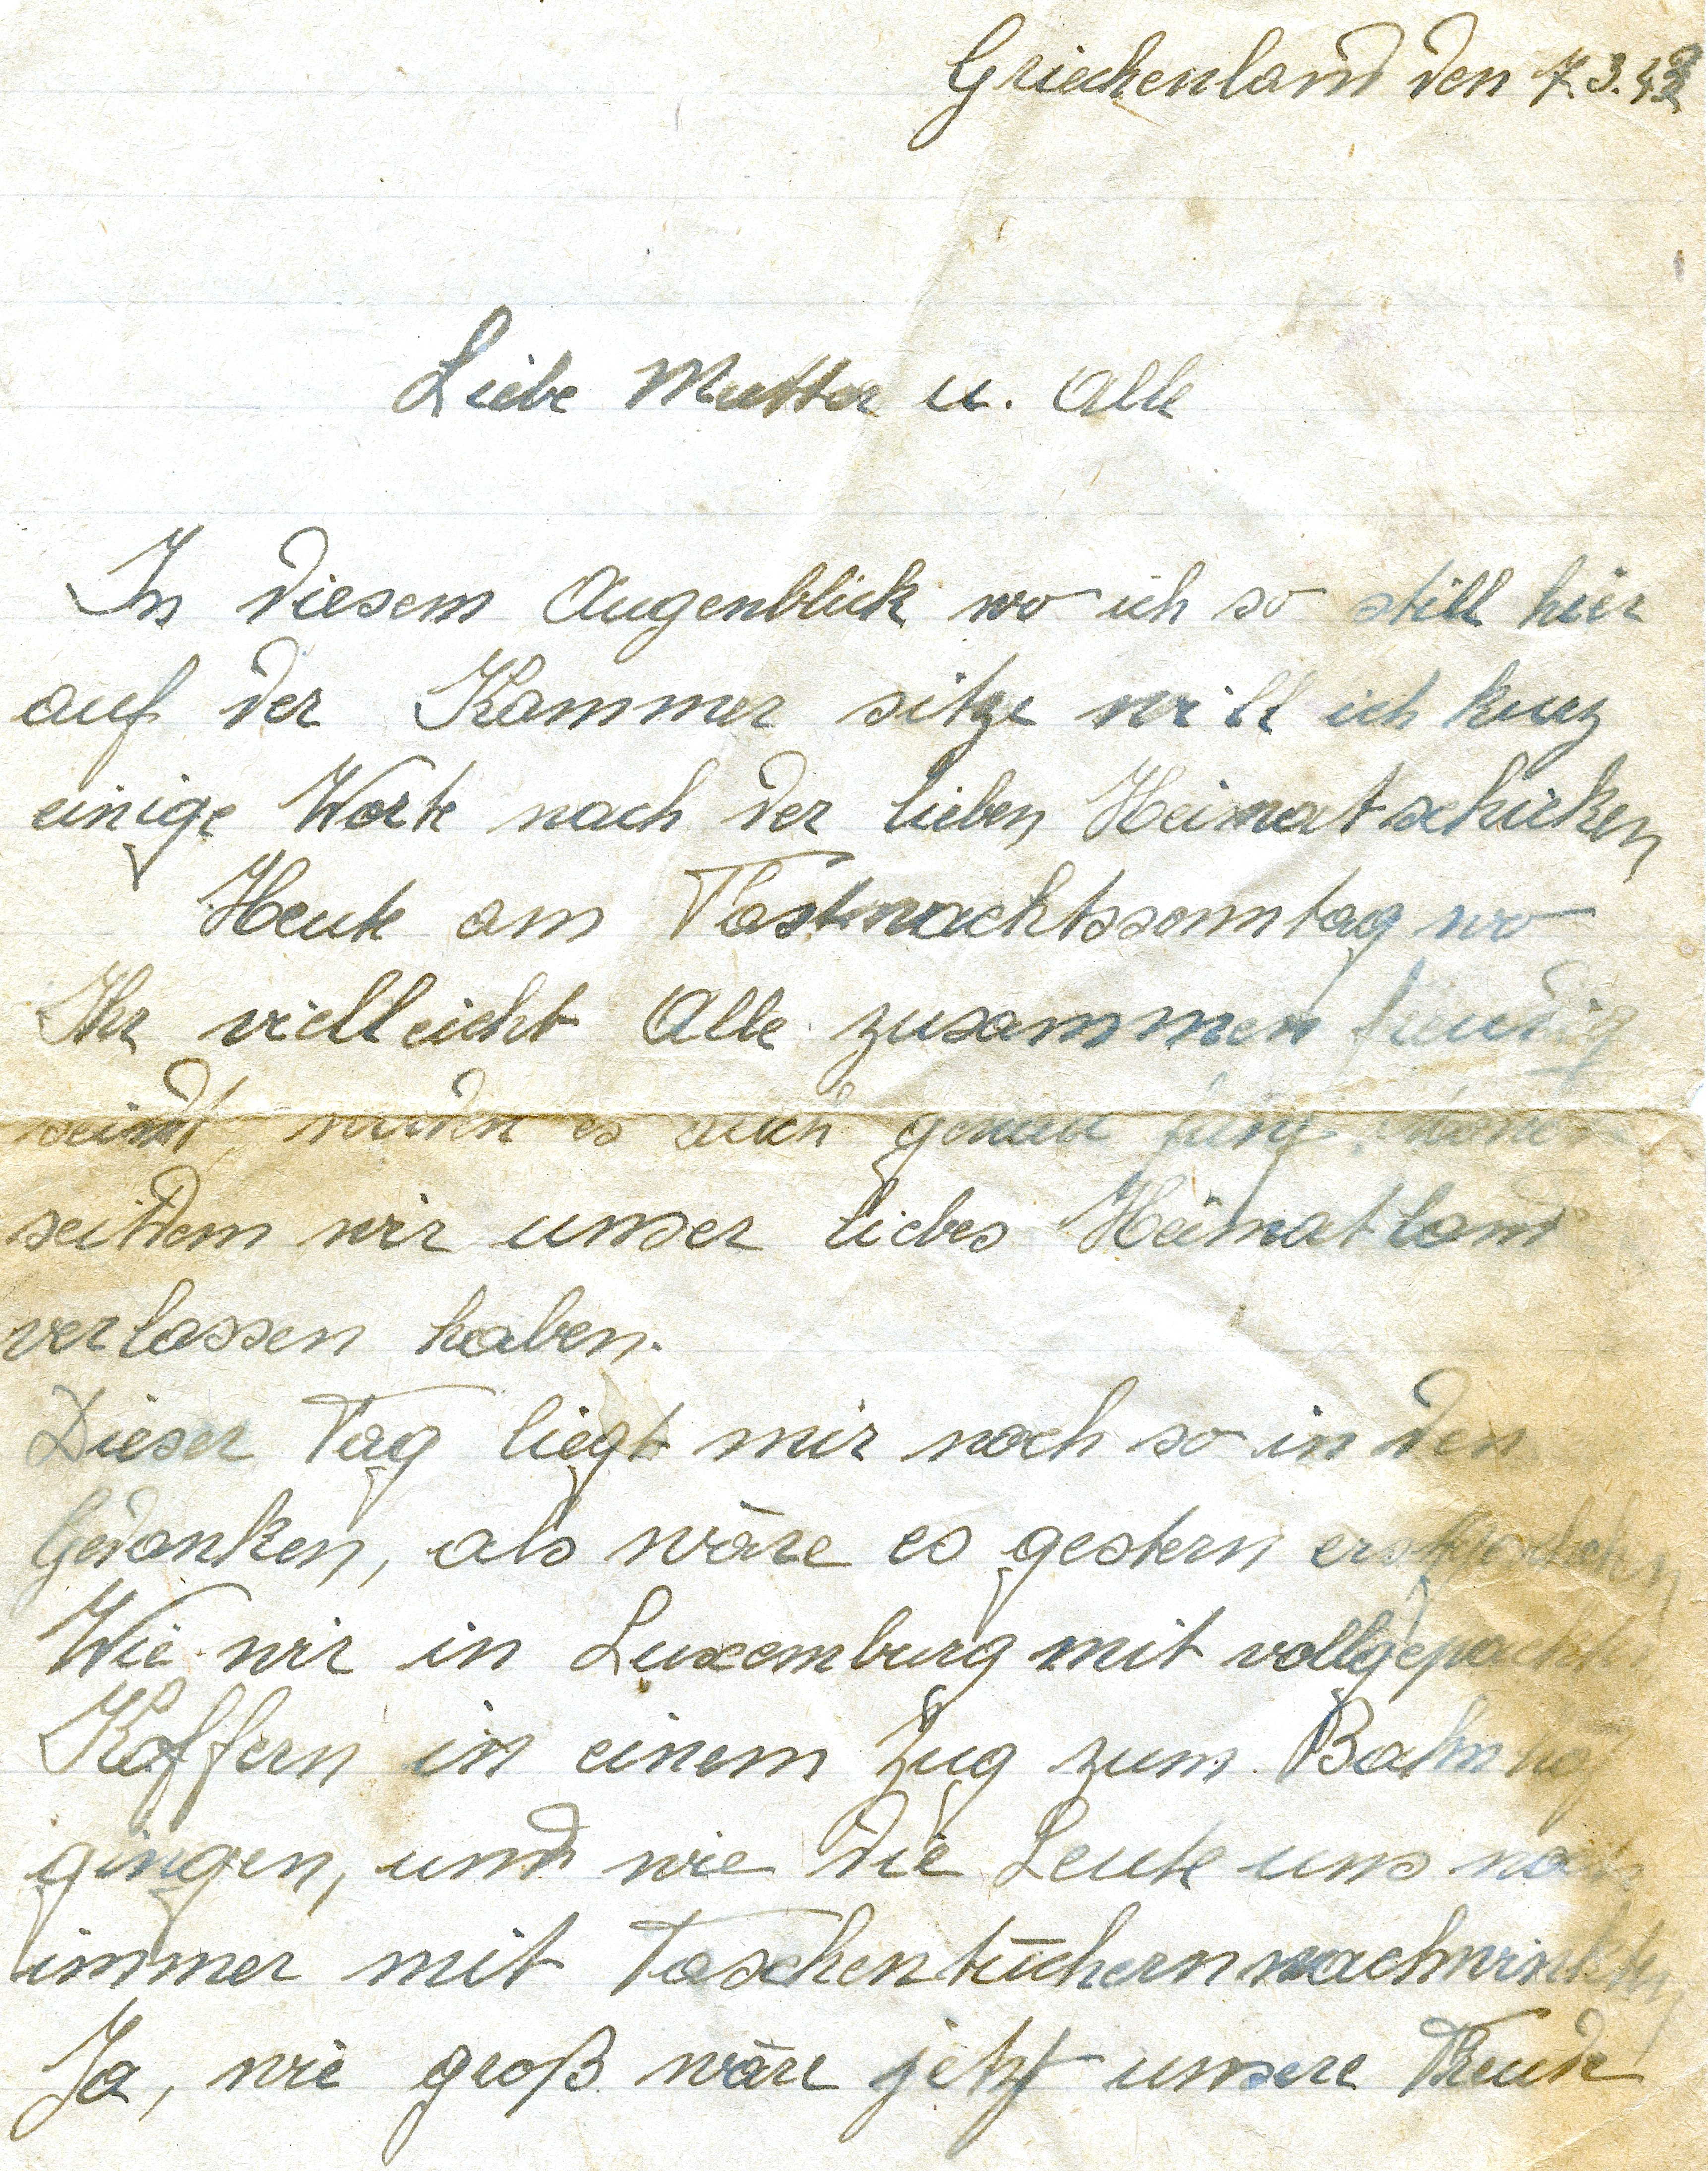 Griechenland den 7.3.43
Liebe Mutter u. Alle
In diesem Augenblick wo ich so still hier
auf der Kammer sitze will ich kurz
einige Worte nach der lieben Heimat schicken
Heute am Fastnachtssonntag wo
Ihr vielleicht Alle zusammen freudig
seidt, werden es auch genau fünf
seitdem wir unser liebes Heimatland
verlassen haben.
Dieser Tag liegt mir noch so in den
Gedanken, als wäre es gestern erst
Wie wir in Luxemburg mit vollgepackten
Koffern in einem Zug zum Bahnhof
gingen, und wie die Leute uns noch
immer mit Taschentüchern nachwinkten
Ja, wie groß wäre jetzt unsere Freude